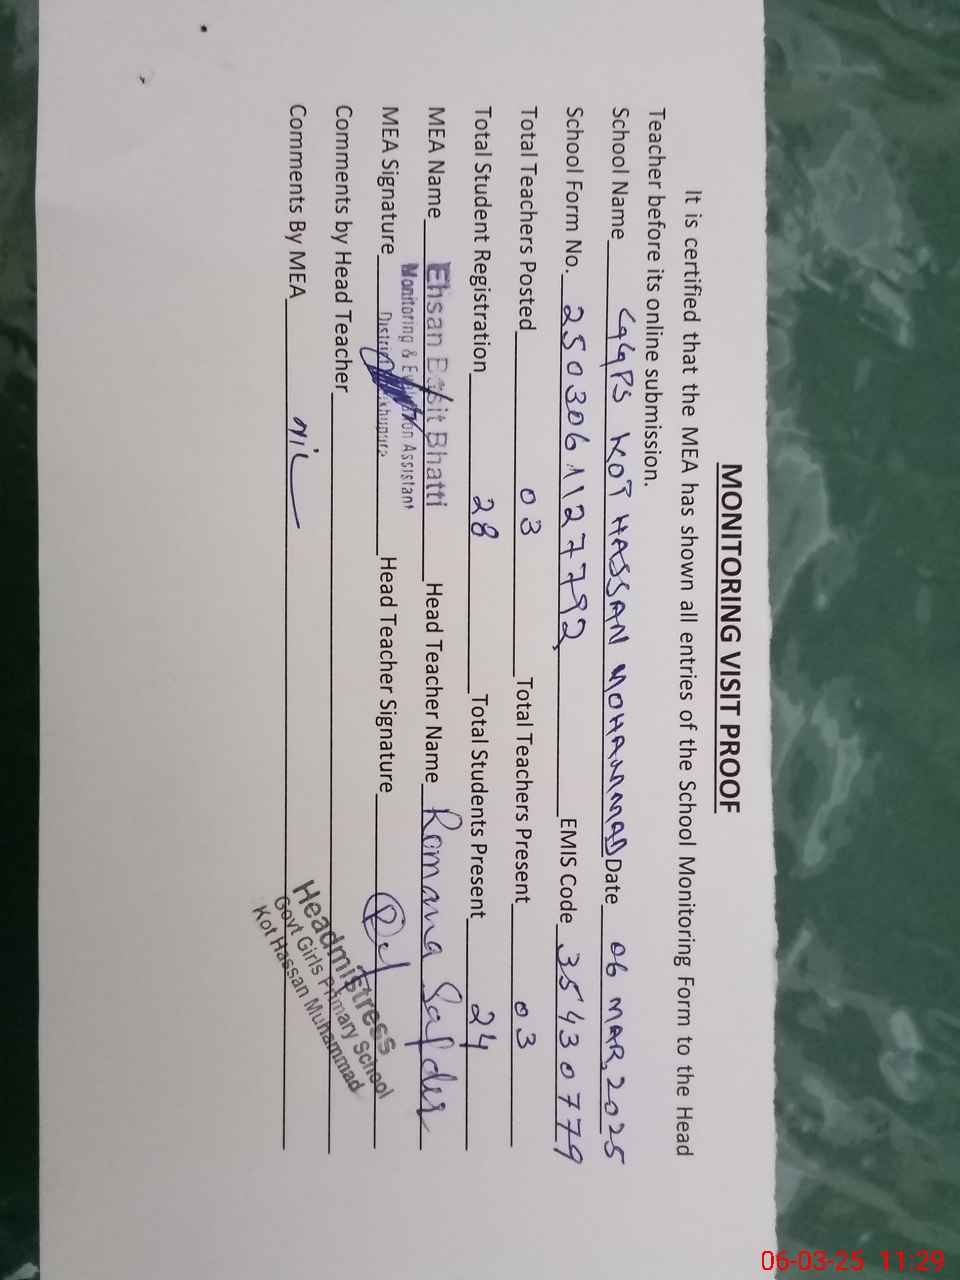 MONITORING VISIT PROOF
It is certified that the MEA has shown all entries of the School Monitoring Form to the Head
Teacher before its online submission.
School Name GGPS KOT HASSAN MOHAMMAD Date 06 MAR, 2025
School Form No. 2503061127792 EMIS Code 35430779
Total Teachers Posted 03 Total Teachers Present 03
Total Student Registration 28 Total Students Present 24
MEA Name Ehsan Basit Bhatti Head Teacher Name Romana Safder
Monitoring & Evaluation Assistant
MEA Signature District Head Teacher Signature
Comments by Head Teacher
Headmistress
Govt Girls Primary School
Kot Hassan Muhammad
Comments By MEA nil
06-03-25 11:29